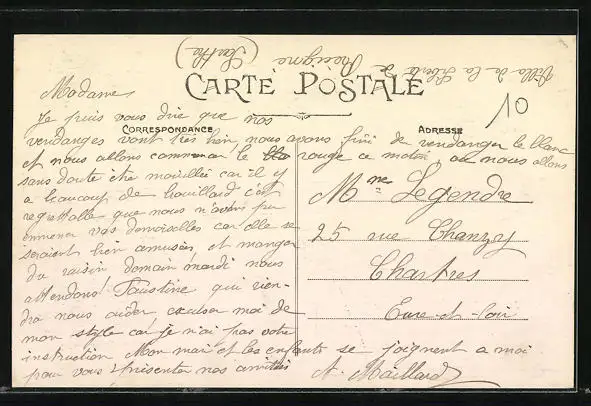 Villa de la Liberté
Précigné (Sarthe)
CARTE POSTALE
10
CORRESPONDANCE
ADRESSE
Madame
Je puis vous dire que nos
vendanges vont très bien, nous avons fini de vendanger le blanc
et nous allons commencer le rouge ce matin, ou nous allons
sans doute être mouillés car il y
a beaucoup de brouillard c'est
regrettable que nous n'avons pu
emmener vos demoiselles car elle se
seraient bien amusées et manger
du raisin demain mardi nous
attendons Faustine qui vien-
dra nous aider excuser moi de
mon style car je n'ai pas votre
instruction Mon mari et les enfants se joignent a moi
pour vous présenter nos amitiés
A. Maillard
Mme Legendre
25 rue Chanzy
Chartres
Eure-et-Loir